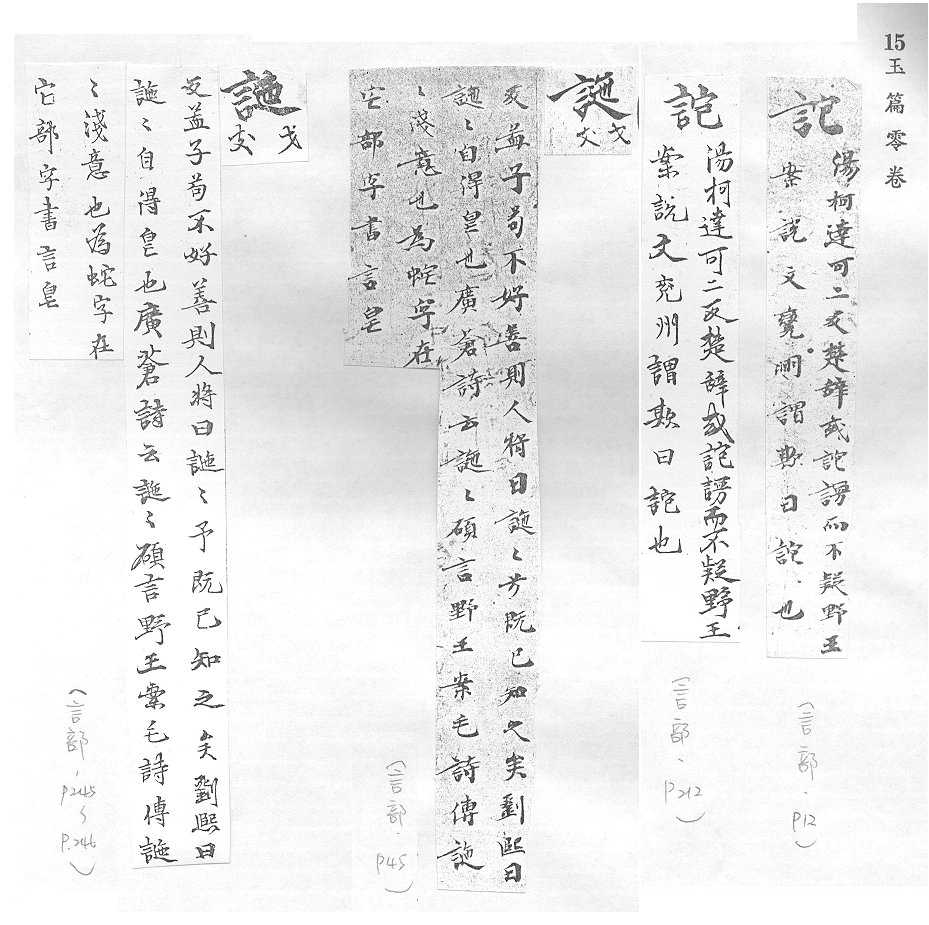 15玉篇零卷
詑
湯柯達可二反楚辞或詑謗而不疑野王
案說文兖州謂欺曰詑、也
(言部.P12)
詑
湯柯達可二反楚辞或詑謗而不疑野王
案說文兖州謂欺曰詑也
(言部、P212)
詍戈支
反孟子苟不好善則人將曰詍〻予既已知之矣劉熙曰
詍〻自得皃也廣蒼詩云詍〻碩言野王案毛詩傳詍
〻淺意也為蛇字在
它部字書言皃
(言部.P45)
詍戈支
反孟子苟不好善則人將曰詍〻予既已知之矣劉熙曰
詍〻自得皃也廣蒼詩云詍〻碩言野王案毛詩傳詍
〻淺意也為蛇字在
它部字書言皃
(言部.P245~P.246)